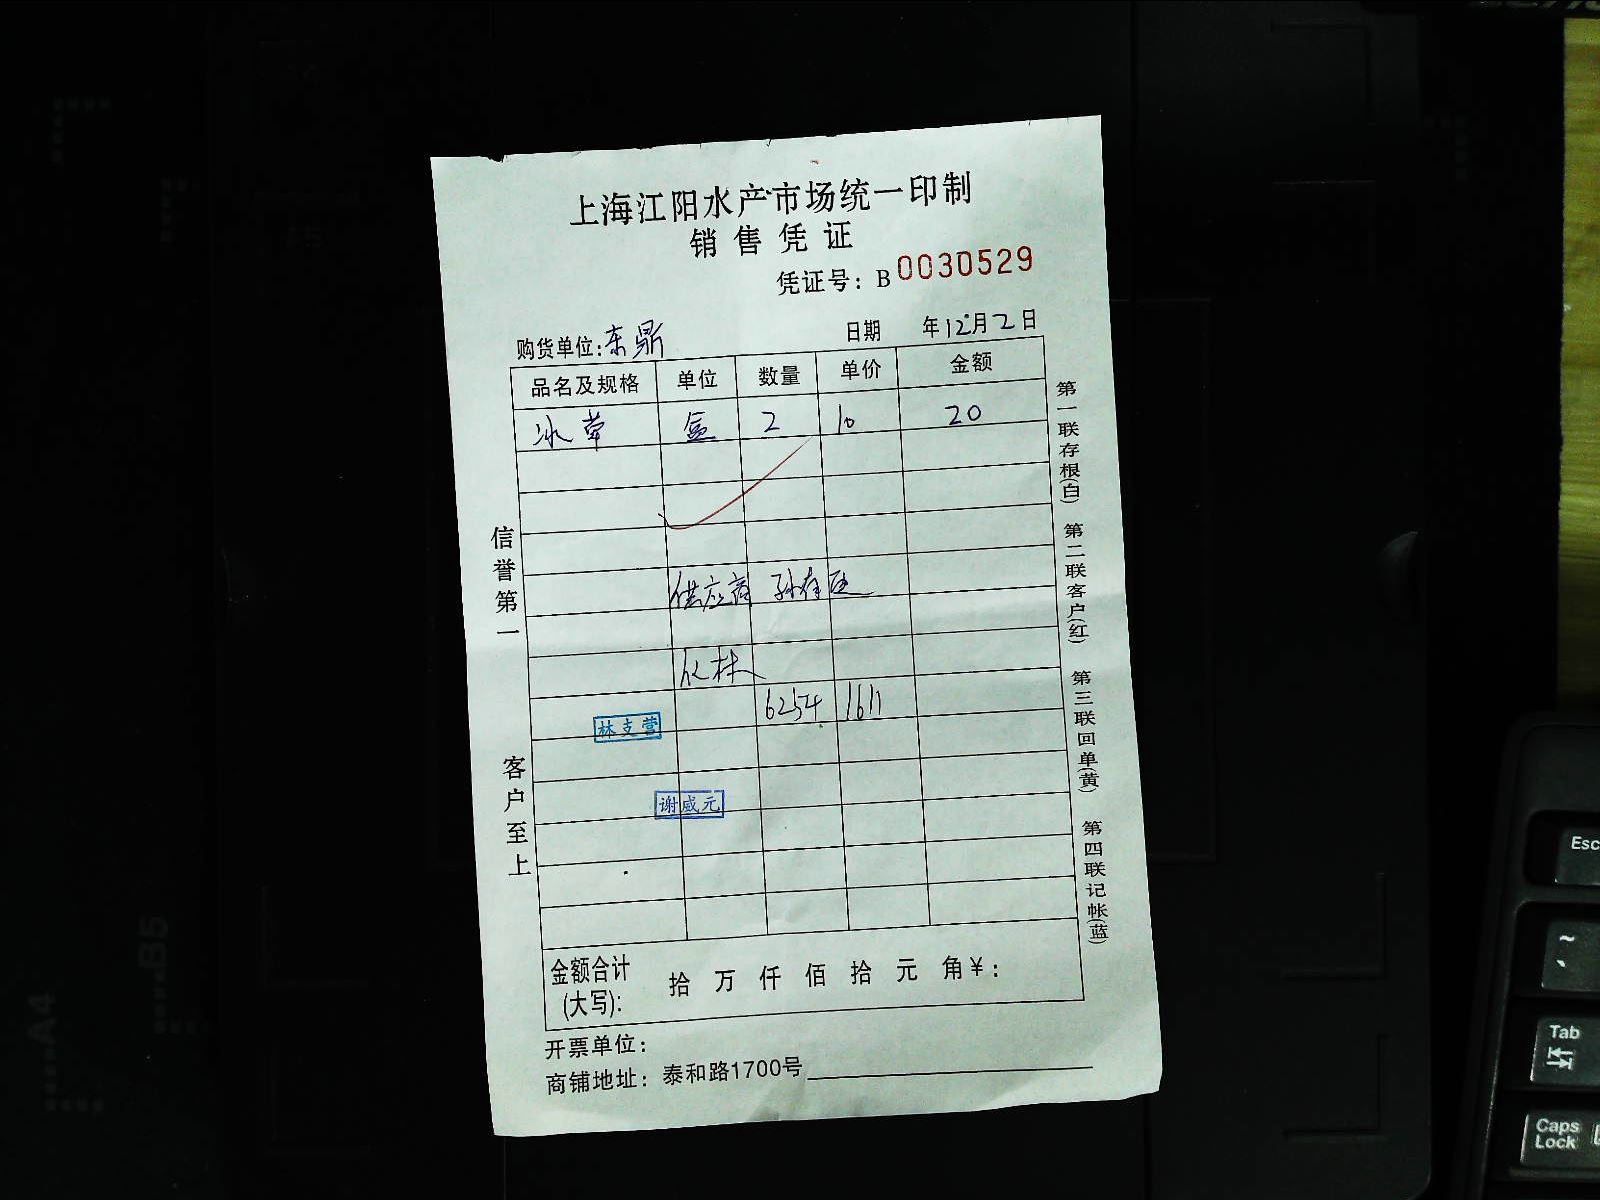 上海江阳水产市场统一印制
销售凭证
凭证号：B 0030529
购货单位：东鼎 日期 年12月2日
品名及规格 单位 数量 单价 金额
冰 盒 2 10 20
供应商 孙存
林
6254 1611
林支营
谢威元
金额合计(大写)： 拾 万 仟 佰 拾 元 角 ¥：
开票单位：
商铺地址：泰和路1700号
信誉第一
客户至上
第一联存根(白) 第二联客户(红) 第三联回单(黄) 第四联记帐(蓝)
A4
B5
Esc
~
Tab
Caps Lock